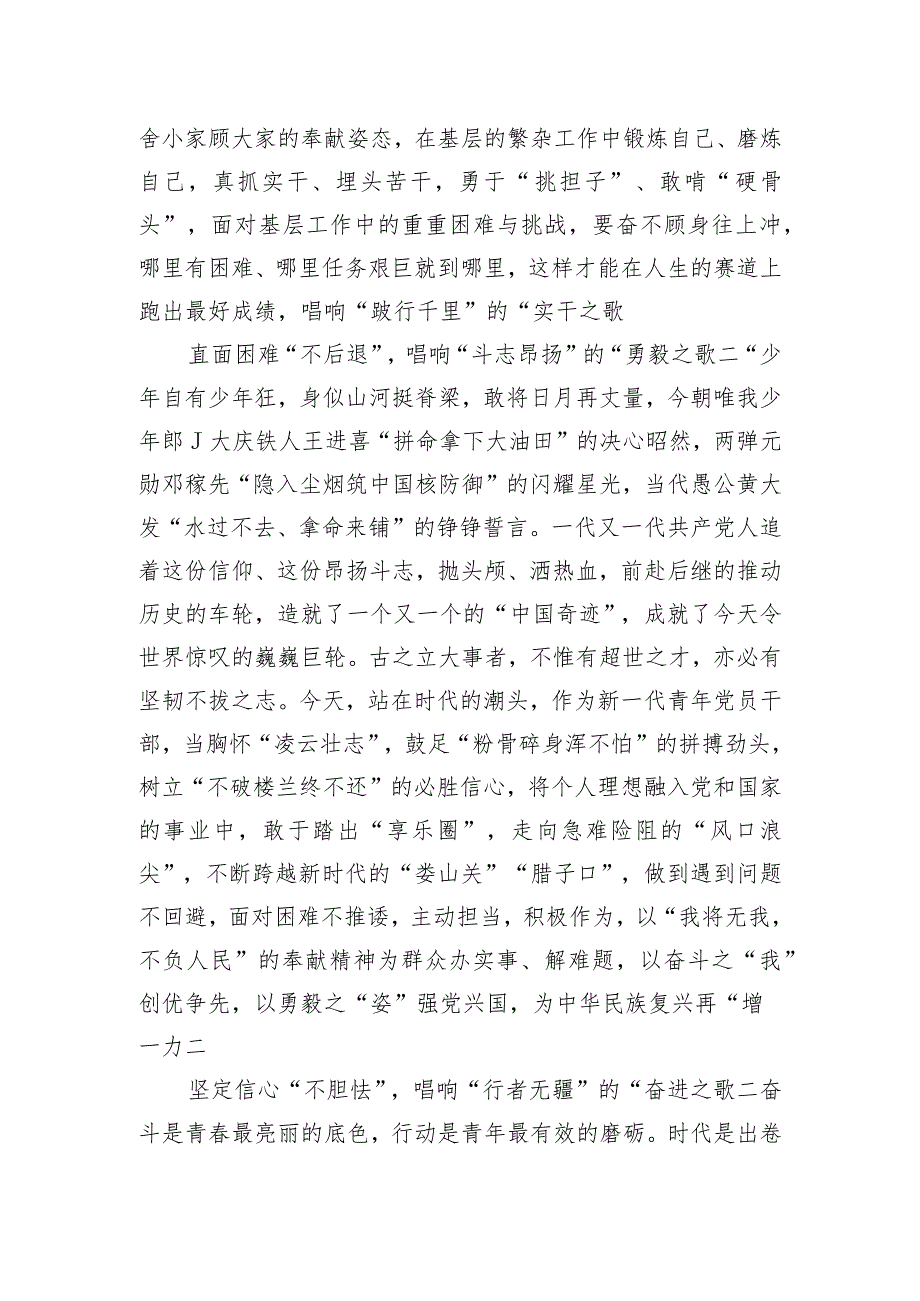 舍小家顾大家的奉献姿态，在基层的繁杂工作中锻炼自己、磨炼
自己，真抓实干、埋头苦干，勇于“挑担子”、敢啃“硬骨
头”，面对基层工作中的重重困难与挑战，要奋不顾身往上冲，
哪里有困难、哪里任务艰巨就到哪里，这样才能在人生的赛道上
跑出最好成绩，唱响“跛行千里”的“实干之歌
直面困难“不后退”，唱响“斗志昂扬”的“勇毅之歌二“少
年自有少年狂，身似山河挺脊梁，敢将日月再丈量，今朝唯我少
年郎J大庆铁人王进喜“拼命拿下大油田”的决心昭然，两弹元
勋邓稼先“隐入尘烟筑中国核防御”的闪耀星光，当代愚公黄大
发“水过不去、拿命来铺”的铮铮誓言。一代又一代共产党人追
着这份信仰、这份昂扬斗志，抛头颅、洒热血，前赴后继的推动
历史的车轮，造就了一个又一个的“中国奇迹”，成就了今天令
世界惊叹的巍巍巨轮。古之立大事者，不惟有超世之才，亦必有
坚韧不拔之志。今天，站在时代的潮头，作为新一代青年党员干
部，当胸怀“凌云壮志”，鼓足“粉骨碎身浑不怕”的拼搏劲头，
树立“不破楼兰终不还”的必胜信心，将个人理想融入党和国家
的事业中，敢于踏出“享乐圈”，走向急难险阻的“风口浪
尖”，不断跨越新时代的“娄山关”“腊子口”，做到遇到问题
不回避，面对困难不推诿，主动担当，积极作为，以“我将无我，
不负人民”的奉献精神为群众办实事、解难题，以奋斗之“我”
创优争先，以勇毅之“姿”强党兴国，为中华民族复兴再“增
一力二
坚定信心“不胆怯”，唱响“行者无疆”的“奋进之歌二奋
斗是青春最亮丽的底色，行动是青年最有效的磨砺。时代是出卷